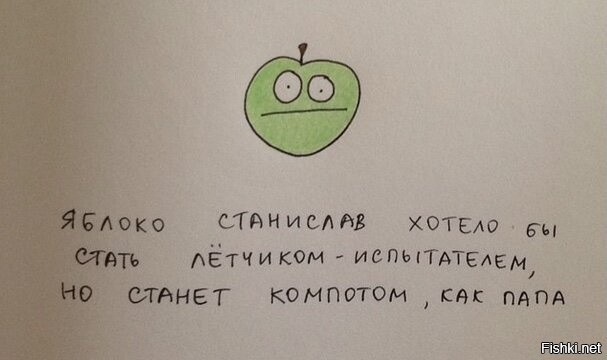 ЯБЛОКО СТАНИСЛАВ ХОТЕЛО БЫ
СТАТЬ ЛЁТЧИКОМ - ИСПЫТАТЕЛЕМ,
НО СТАНЕТ КОМПОТОМ, КАК ПАПА
Fishki.net